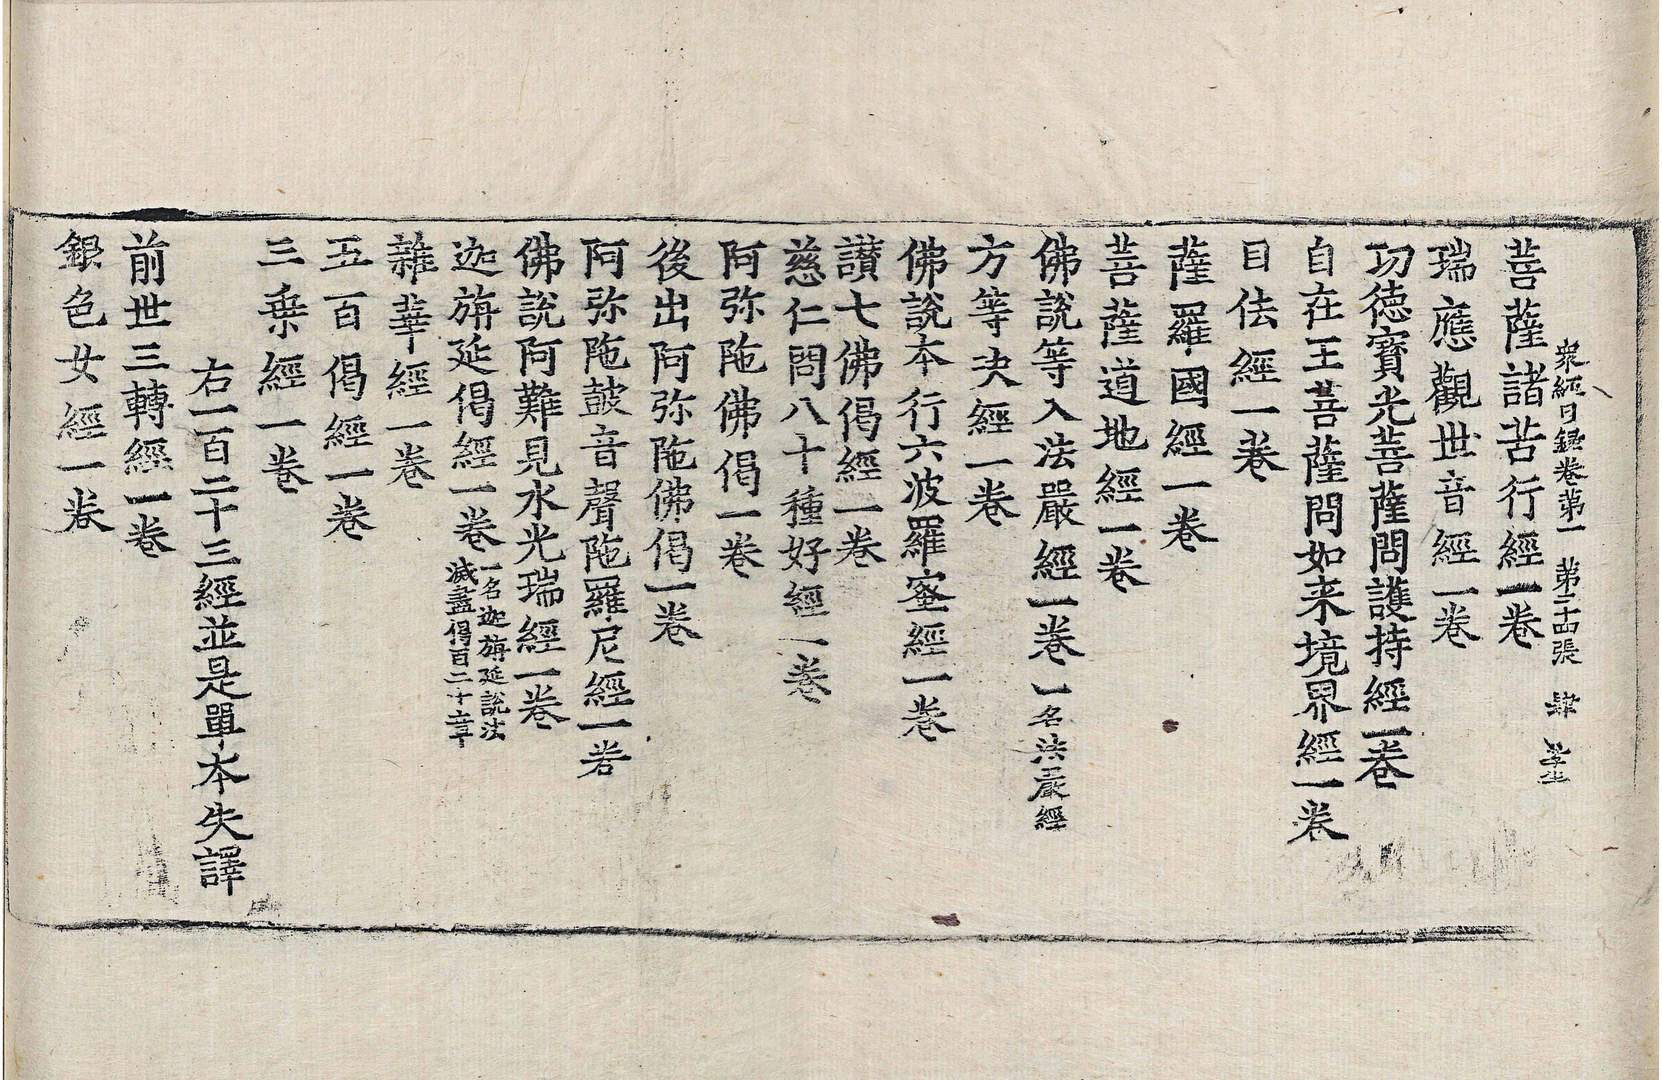 衆經目録卷第一　第二十四張　肆
菩薩諸苦行經一卷
瑞應觀世音經一卷
功德寶光菩薩問護持經一卷
自在王菩薩問如来境界經一卷
目佉經一卷
薩羅國經一卷
菩薩道地經一卷
佛說等入法嚴經一卷一名法嚴經
方等决經一卷
佛說本行六波羅蜜經一卷
讃七佛偈經一卷
慈仁問八十種好經一卷
阿弥陁佛偈一卷
後出阿弥陁佛偈一卷
阿弥陁鼓音聲陁羅尼經一卷
佛說阿難見水光瑞經一卷
迦旃延偈經一卷一名迦旃延說法滅盡偈百二十章
雜華經一卷
五百偈經一卷
三乗經一卷
右一百二十三經並是單本失譯
前世三轉經一卷
銀色女經一卷